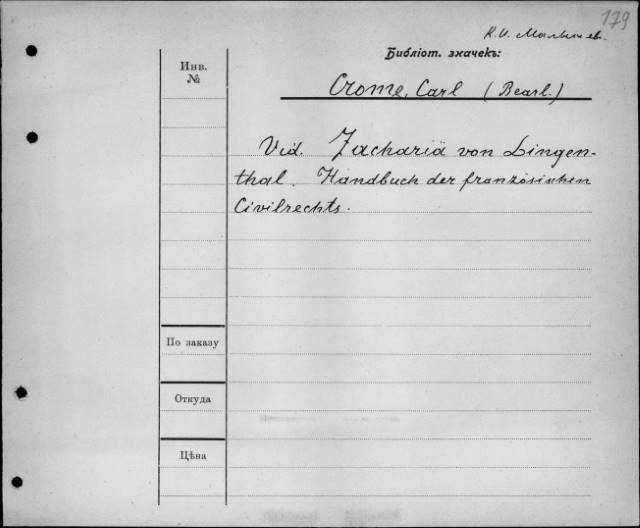 179
К. И. Малышев.
Библіот. значекъ:
Инв.
№
Crome, Carl (Bearb.)
Vid. Zachariä von Lingen-
thal. Handbuch der französischen
Civilrechts.
По заказу
Откуда
Цѣна